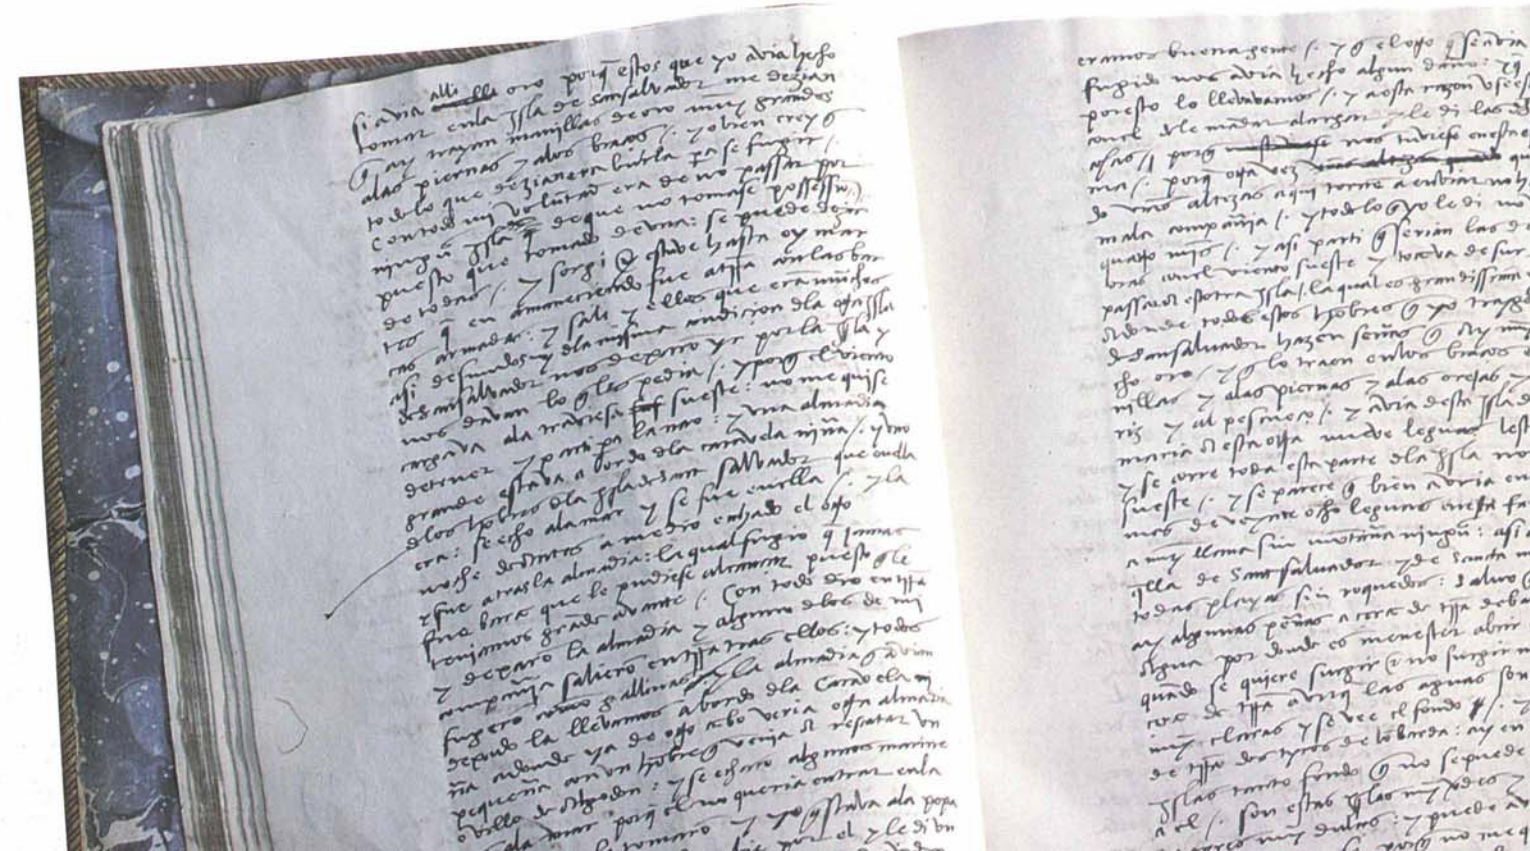 si avia alli oro porq̃ estos que yo avia hecho
tomar enla ysla de sant salvador me dezian
q̃ ay trayan manillas de oro muy grandes
alas piernas y alos braços /. yo bien crey q̃
todo lo que dezian era burla pa se fugir /.
con todo mi volũtad era de no passar por
ningũa ysla de que no tomase possessiõ
puesto que tomado de vna: se puede dezir
de todas /. y sorgi & estuve hasta oy mar
tes q̃ en amaneciendo fue a trr̃a con las bar
cas armadas: y sali y ellos que erã muchos
asi desnudos y dla misma condiçion dla otra ysla
de sant salvador nos dexarõ yr por la ysla y
nos davan lo q̃ les pedia /. y porq̃ el viento
cargava ala traviesa sueste: no me quise
detener y parti pa la nao: y vna almadia
grande estava a bordo dla caravela niña /. y vno
dlos hõbres dla ysla de sant salvador que enella
era: se echo ala mar y se fue enella /. y la
noche de antes a medio echado el otro
y fue atras la almadia: la qual fugio q̃ jamas
fue barca que le pudiese alcançar puesto q̃ le
teniamos grãde avante /. Con todo dio en trr̃a
y dexarõ la almadia y algunos dlos de mi
compañia salierõ en trr̃a tras ellos: y todos
fugerõ como gallinas y la almadia q̃ aviã
dexado la llevamos abordo dla Caravela ni
ña adonde ya de otro cabo venia otra almadia
pequeña con vn hõbre q̃ venia a resatar vn
ovillo de algodon: y se echarõ algunos marine
ala mar porq̃ el no queria entrar enla
la tomarõ y yo q̃stava ala popa
por el y le di vn
eramos buena gente /. y q̃ el otro q̃ se avia
fugido nos avia hecho algun daño:
por esto lo llevavamos /. y a esta razon vse
conel dele mãdar alargar y le di las
cosas /. porq̃ nos tuviese en esta
ma /. porq̃ otra vez
do vr̃as altezas aqui tornẽ a enbiar no h
mala compañia /. y todo lo q̃ yo le di no
quatro mr̃s /. y asi parti q̃ seriã las
oras conel viento sueste y tocava de sur
passar a estotra ysla /. la qual es grandissima
adonde todos estos hõbres q̃ yo traygo
de san salvador hazen señas q̃ ay mu
cho oro /. y q̃ lo traen enlos braços
nillas y alas piernas y alas orejas
riz y al pescueço /. y avia desta ysla
maria a esta otra nueve leguas lest
y se corre toda esta parte dla ysla no
sueste /. y se parece q̃ bien avria en
mas de veynte ocho leguas enesta fa
muy llana sin mõtaña ningũa: asi
q̃lla de sant salvador y de sancta m
todas playas sin roquedos: salvo
ay algunas peñas acerca de trr̃a deba
agua por donde es menester abrir
quãdo se quiere surgir & no surgir m
cerca de trr̃a avnq̃ las aguas son
muy claras y se vee el fondo /.
de trr̃a dos tyros de lõbarda: ay en
yslas tanto fondo q̃ no se puede
a el /. son estas yslas muy vdes y
ayres muy dulces: y puede av
porq̃ no me q